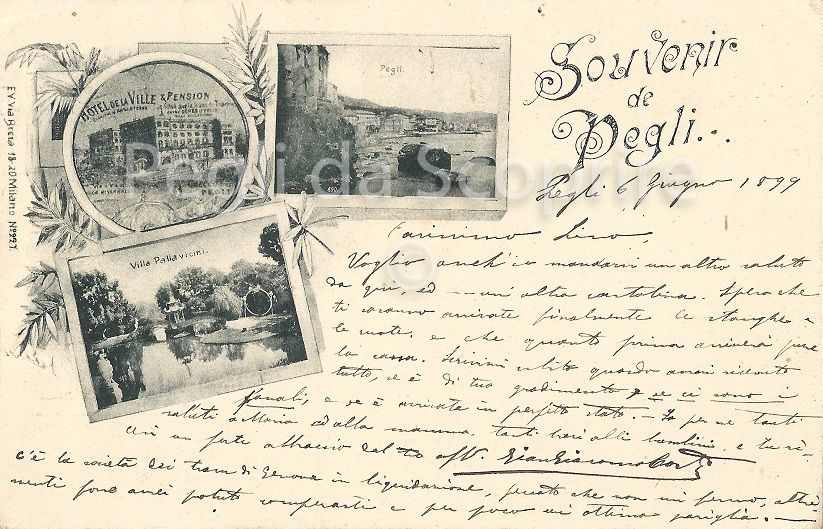 Souvenir
de
Pegli...
Pegli.
HOTEL DE LA VILLE & PENSION
Villa Pallavicini.
E.V. Via Brera 18-20 Milano No 227
Pegli da Scoprire
©
Pegli 6 Giugno 1899
Carissimo Siro,
Voglio anch'io mandarti un altro saluto
da qui, ed un'altra cartolina. Spero che
ti saranno arrivate finalmente le stanghe e
le ruote, e che quanto prima arriverà pure
la cassa. Scrivimi subito quando avrai ricevuto
tutto, se è di tuo gradimento e se ci sono i
fanali, e se è arrivata in perfetto stato. - Fa per me tanti
saluti a Maria ed alla mamma, tanti baci alli bambini, e tu ri-
cevi un forte abbraccio dal tuo aff. Giangiacomo
c'è la società dei tram di Genova in liquidazione, peccato che non mi fermo, altri
menti forse avrei potuto comperarti e per poco un'ottima pariglia. -